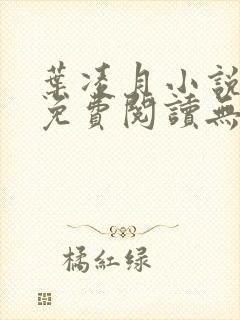 葉凌月小說
免費閱讀無
橘紅绿